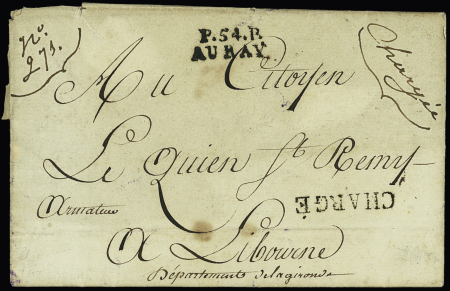 No.
271.
P.54.P.
AURAY
Chargée
Au Citoyen
Le Quien St Remy
CHARGÉ
Armateur
A Libourne
Département de la gironde